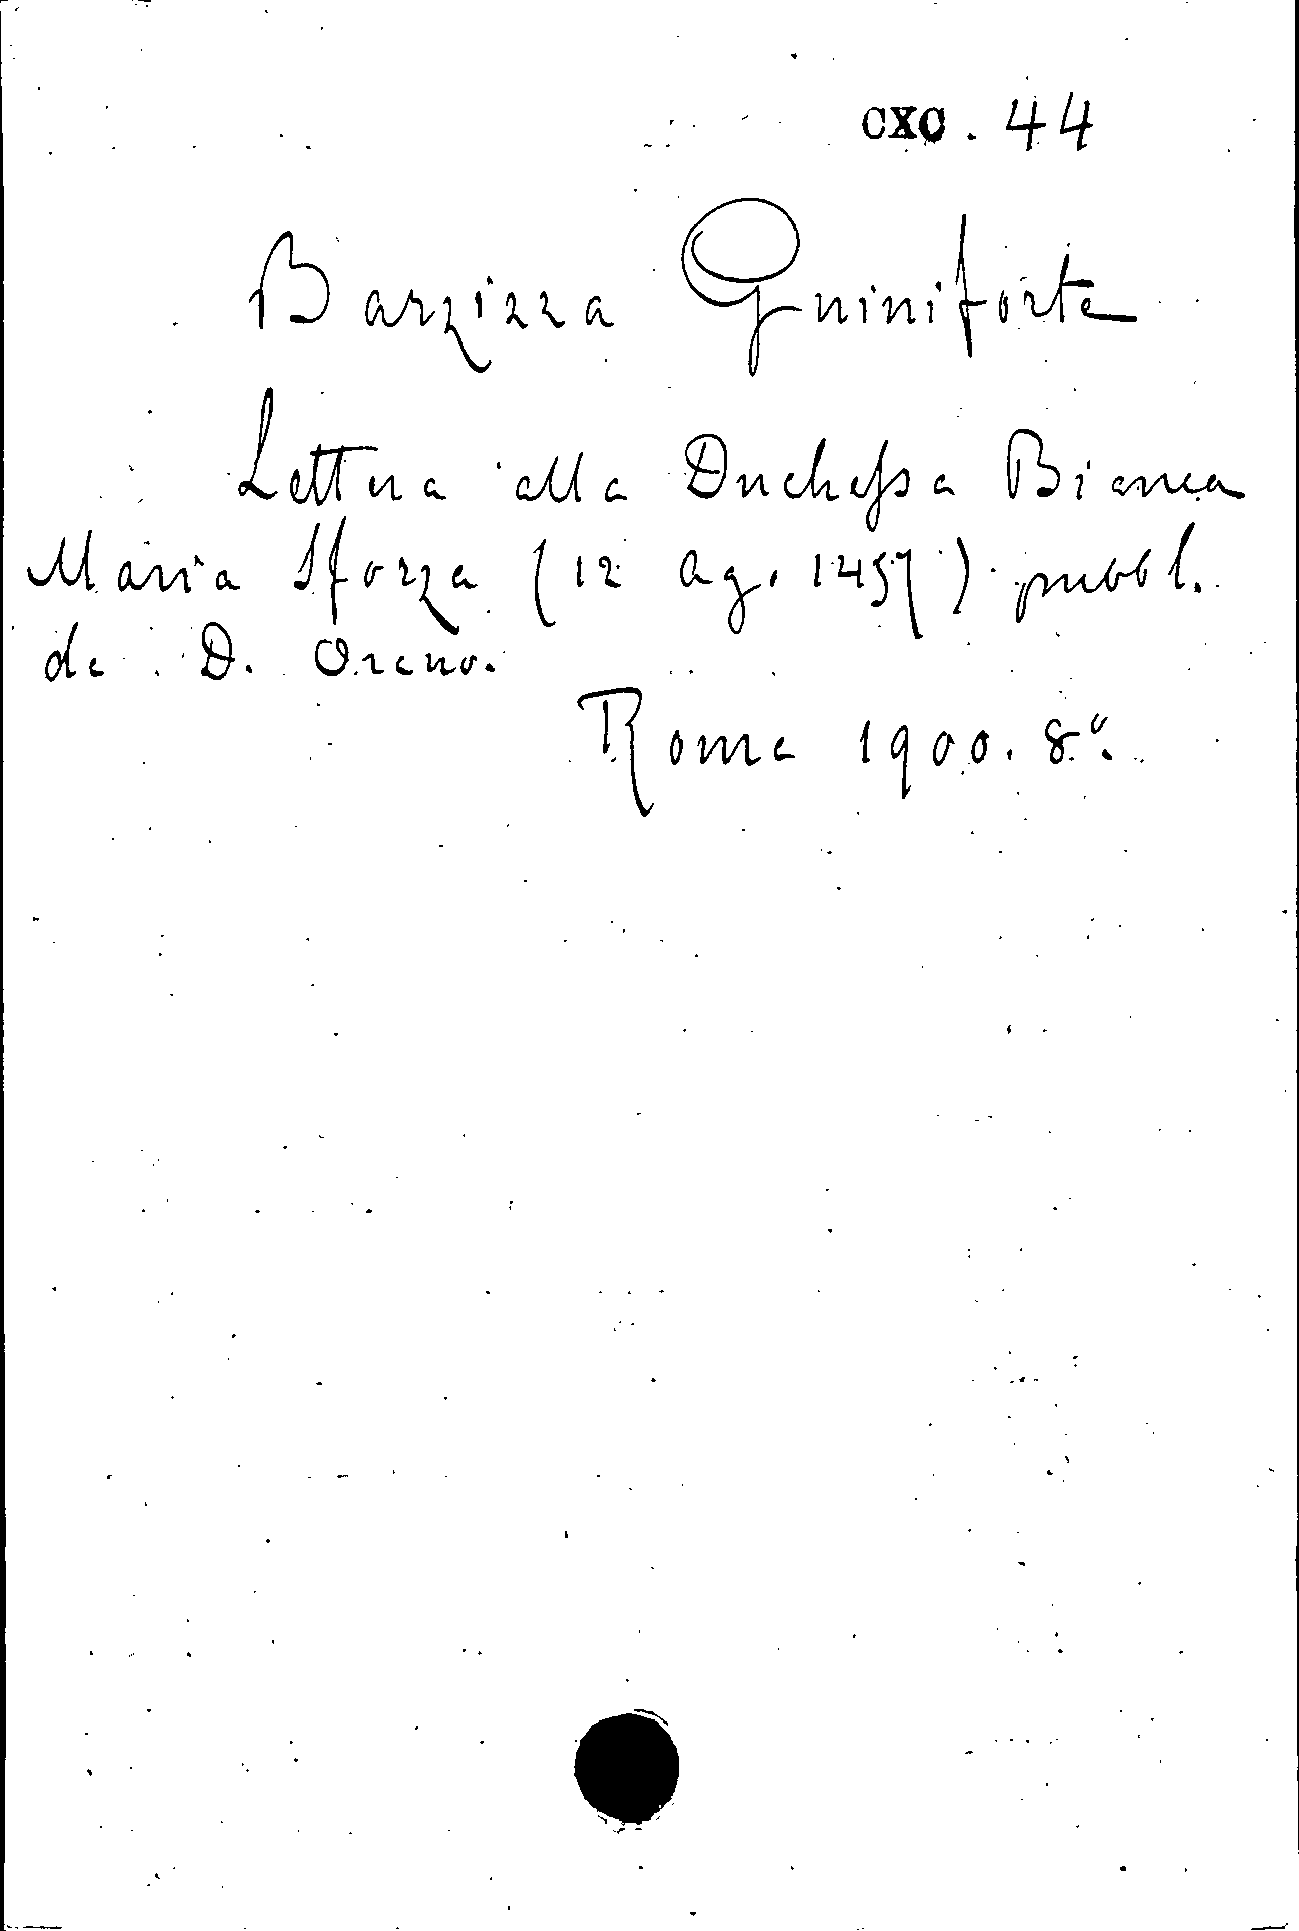 CXC. 44
Barzizza Guiniforte
Lettera alla Duchessa Bianca
Maria Sforza (12 Ag. 1457) pubbl.
da D. Orano.
Roma 1900. 8º.